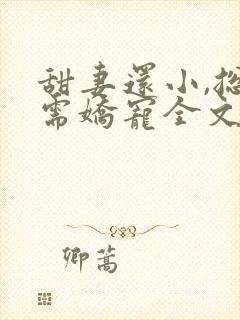 甜妻還小,總
需嬌寵全文
卿蒿